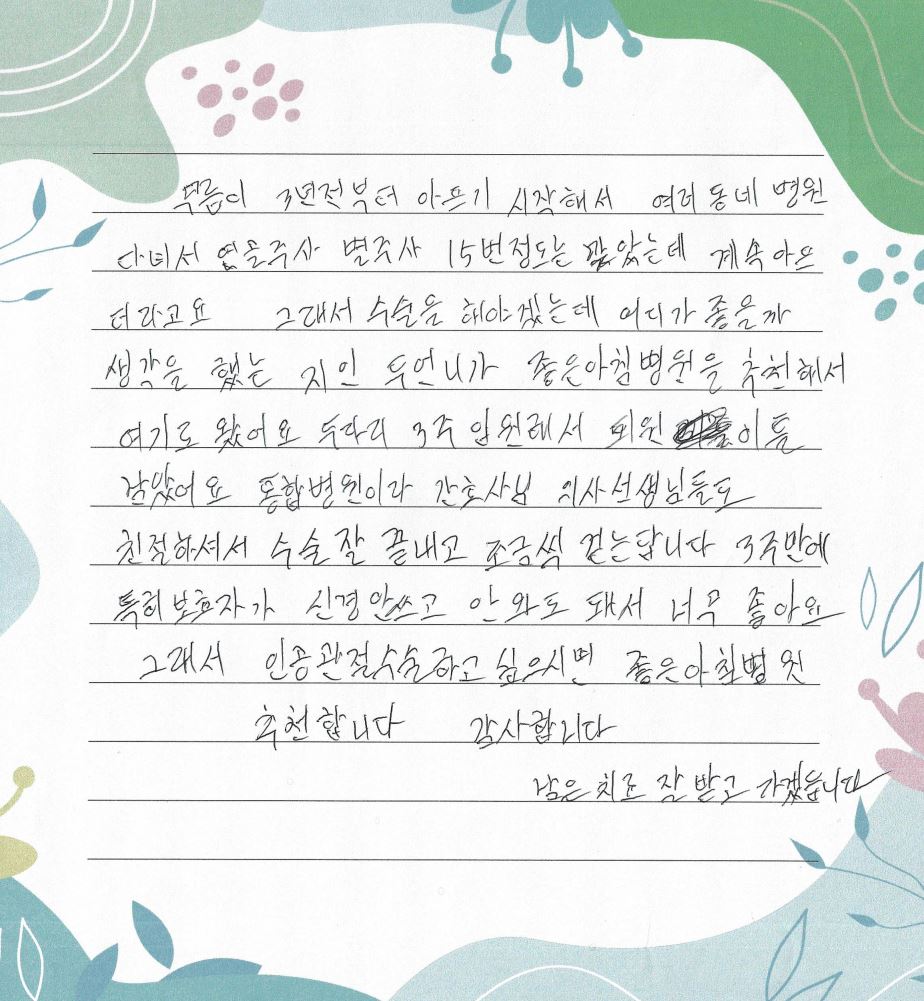 무릎이 3년전부터 아프기 시작해서 여러 동네 병원
다녀서 연골주사 별주사 15번정도는 맞았는데 계속 아프
더라고요 그래서 수술을 해야겠는데 어디가 좋을까
생각을 했는 지인 두언니가 좋은아침병원을 추천해서
여기로 왔어요 두다리 3주 입원해서 퇴원 이틀
남았어요 종합병원이라 간호사님 의사선생님들도
친절하셔서 수술 잘 끝내고 조금씩 걷는답니다 3주만에
특히 보호자가 신경 안쓰고 안 와도 돼서 너무 좋아요
그래서 인공관절수술하고 싶으시면 좋은아침병원
추천합니다 감사합니다
남은 치료 잘 받고 가겠습니다